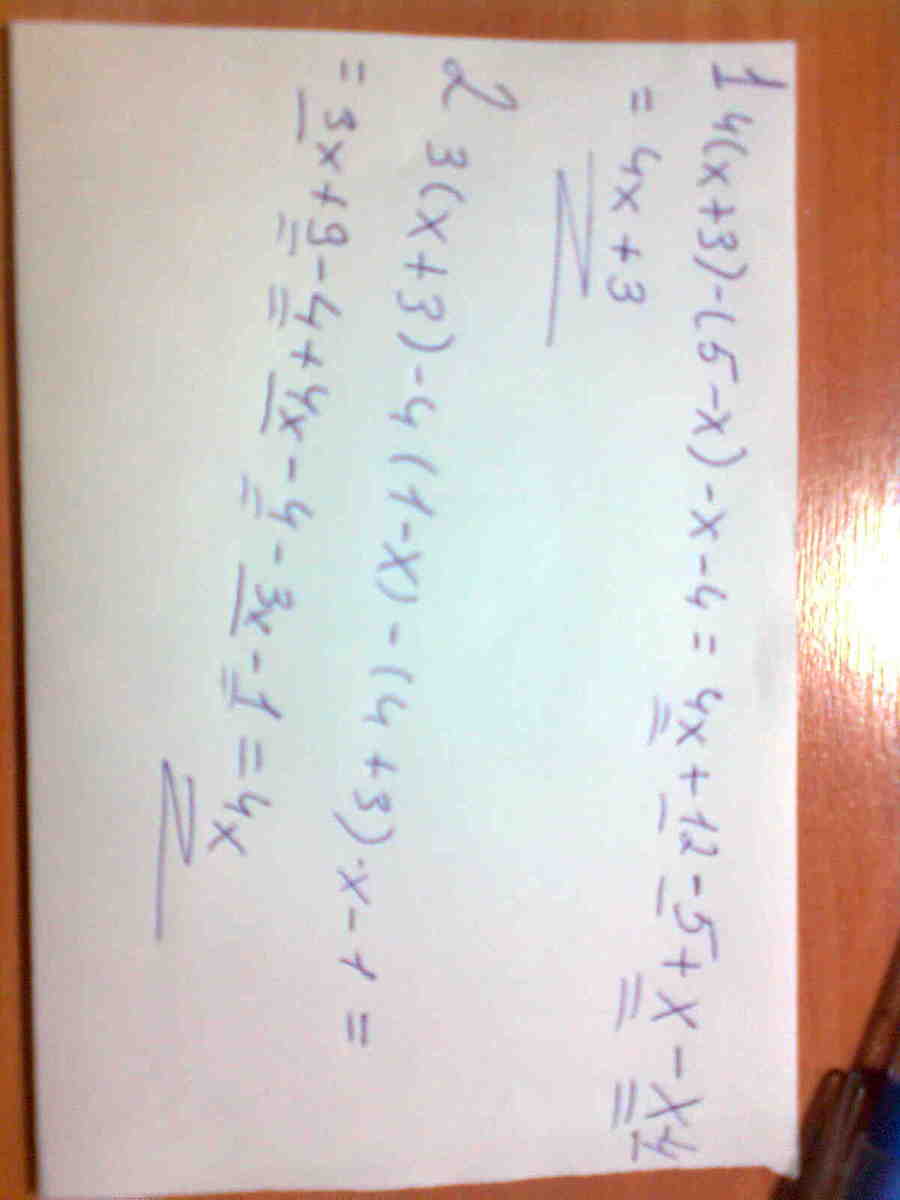 1 4(x+3)-(5-x)-x-4 = 4x+12-5+x-x4
= 4x+3
2 3(x+3)-4(1-x)-(4+3)·x-1 =
= 3x+9-4+4x-4-3x-1 = 4x